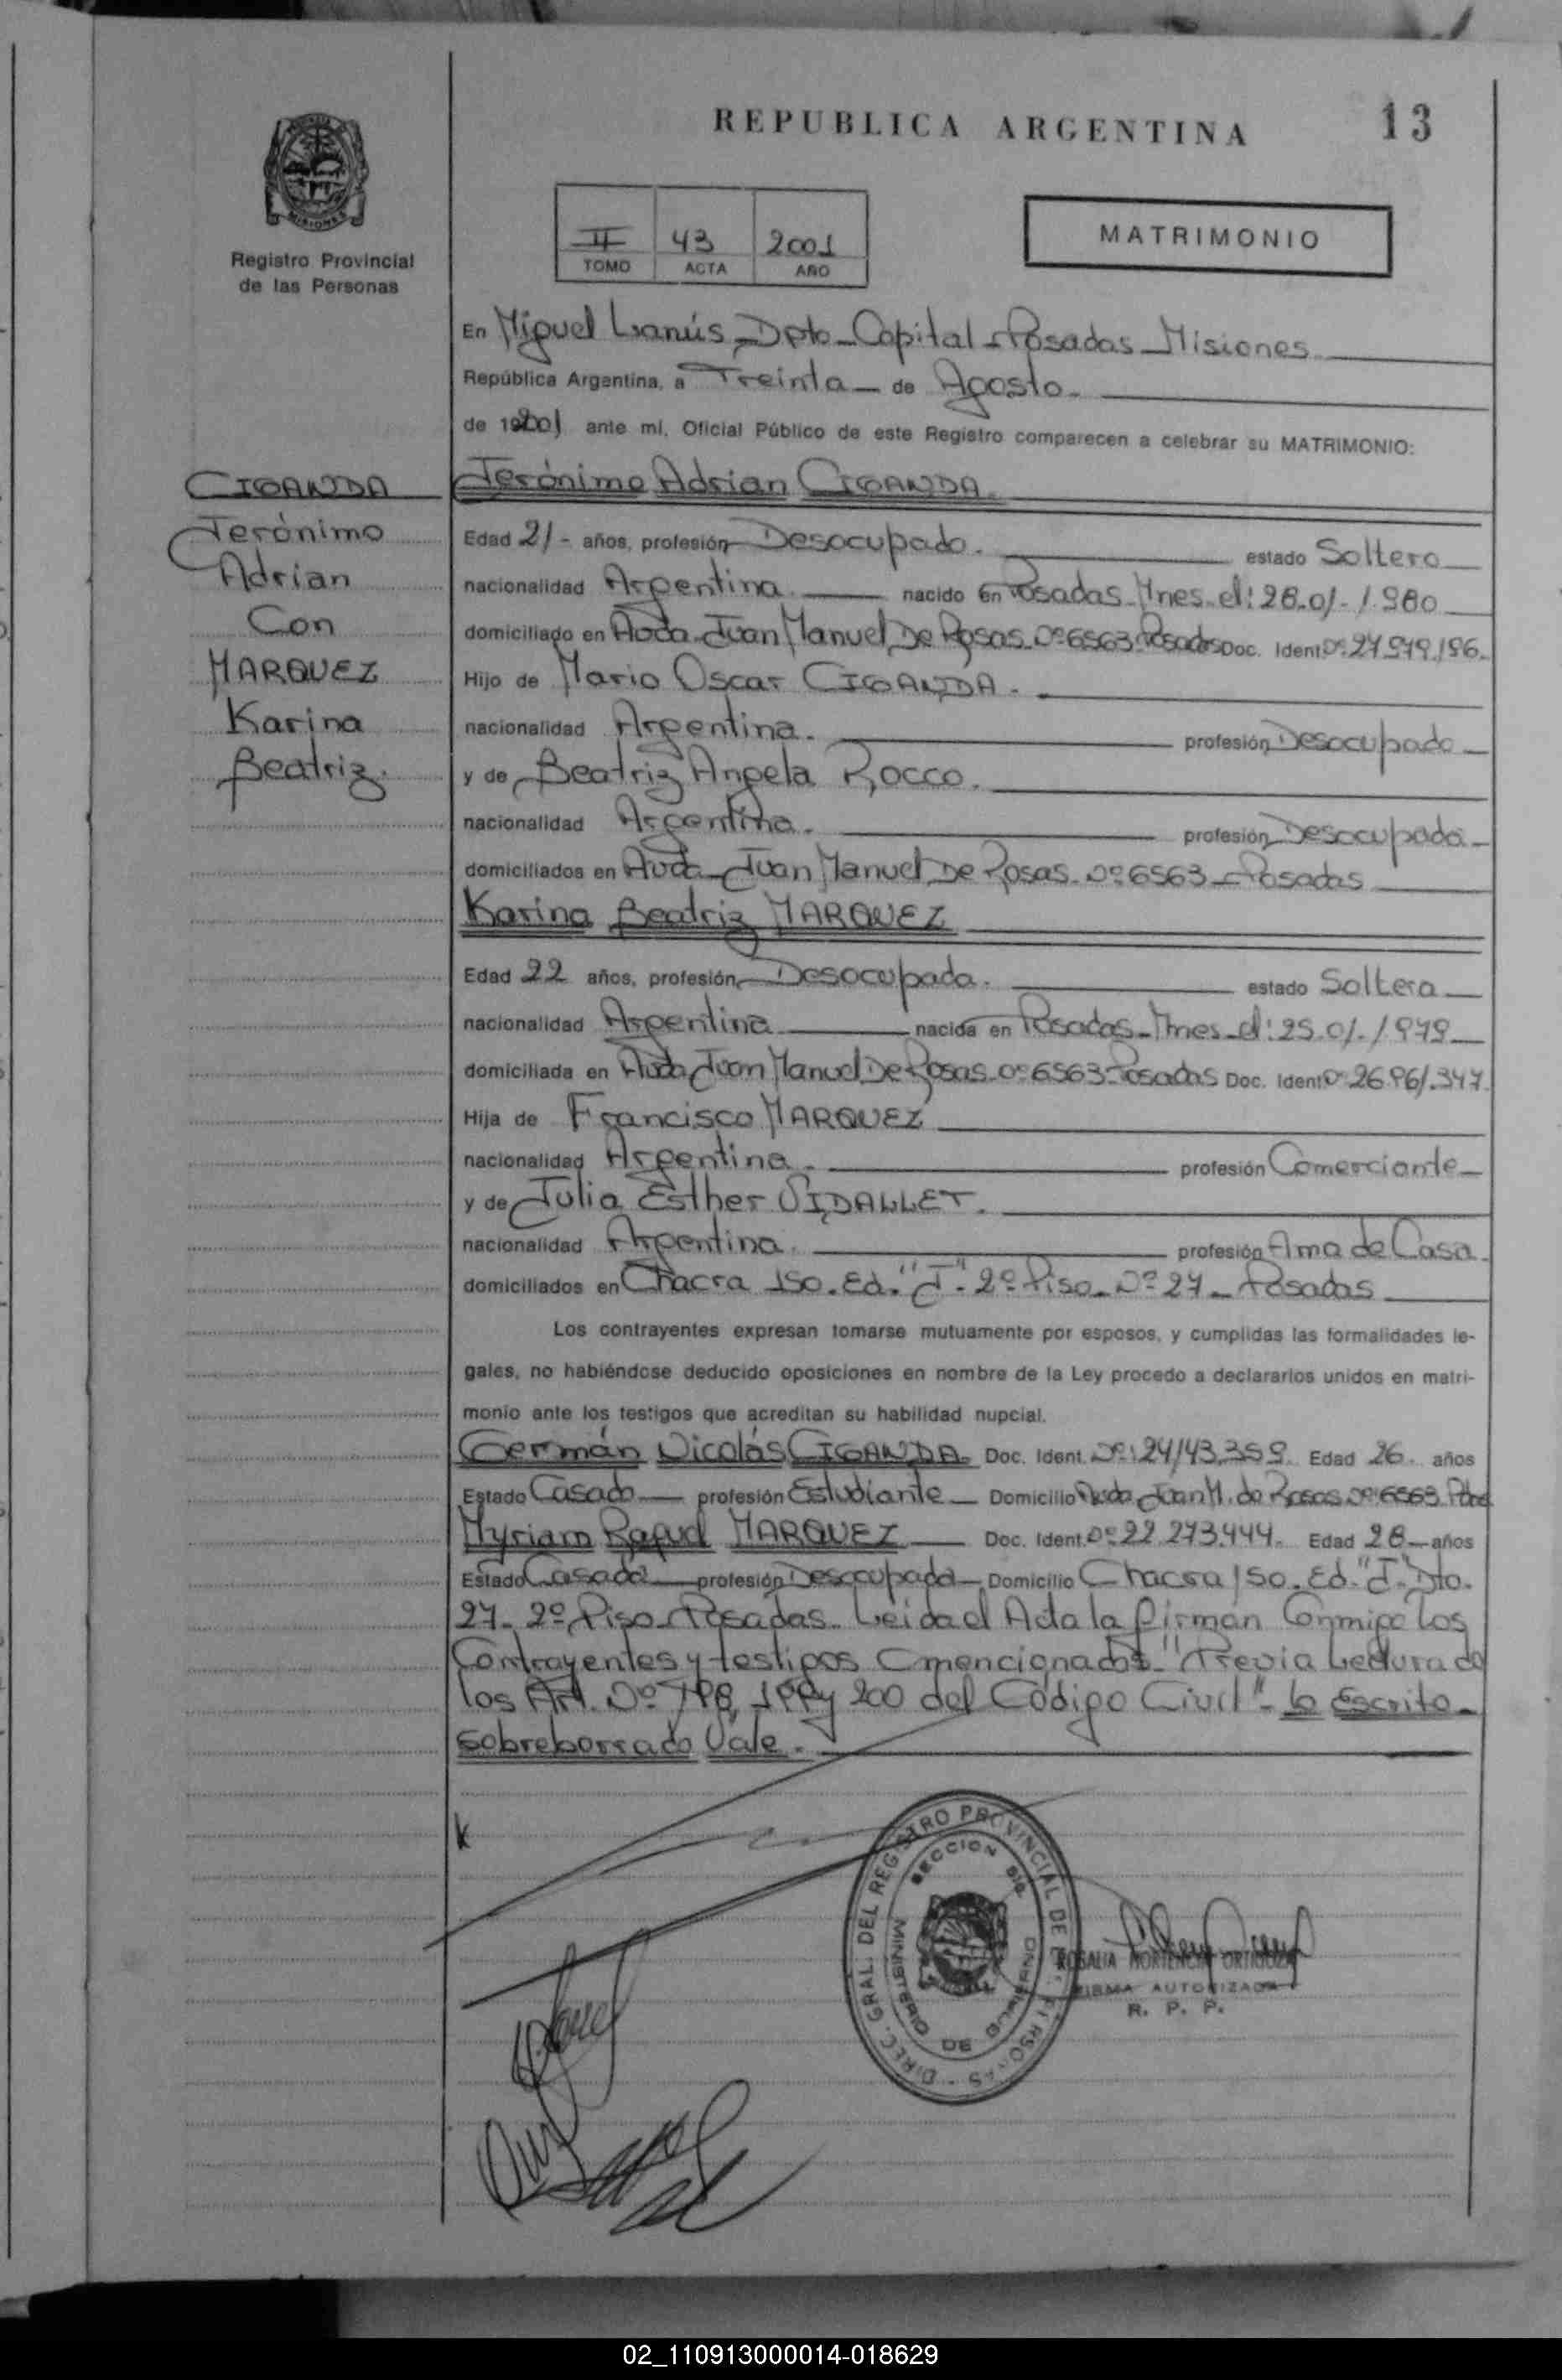 REPUBLICA ARGENTINA
13
MISIONES
Registro Provincial
de las Personas
II 43 2001
TOMO ACTA AÑO
MATRIMONIO
En Miguel Lanús - Dpto - Capital - Posadas - Misiones
República Argentina, a Treinta - de Agosto -
de 2001 ante mí, Oficial Público de este Registro comparecen a celebrar su MATRIMONIO:
CIGANDA
Jerónimo
Adrian
Con
MARQUEZ
Karina
Beatriz.
Jerónimo Adrian CIGANDA.
Edad 21 - años, profesión Desocupado. estado Soltero
nacionalidad Argentina. nacido en Posadas - Mnes. el: 28.01.1980
domiciliado en Avda. Juan Manuel De Rosas. Nº 6563 - Posadas Doc. Ident. Nº: 27.979.196.
Hijo de Mario Oscar CIGANDA.
nacionalidad Argentina. profesión Desocupado
y de Beatriz Angela ROCCO.
nacionalidad Argentina. profesión Desocupada
domiciliados en Avda - Juan Manuel De Rosas. Nº 6563 - Posadas
Karina Beatriz MARQUEZ
Edad 22 años, profesión Desocupada. estado Soltera
nacionalidad Argentina nacida en Posadas - Mnes - el: 25.01.1979
domiciliada en Avda Juan Manuel De Rosas Nº 6563 - Posadas Doc. Ident. Nº 26.961.347.
Hija de Francisco MARQUEZ
nacionalidad Argentina. profesión Comerciante
y de Julia Esther VIDALLET.
nacionalidad Argentina. profesión Ama de Casa.
domiciliados en Chacra 150. Ed. "J" - 2º Piso - Nº 27 - Posadas
Los contrayentes expresan tomarse mutuamente por esposos, y cumplidas las formalidades le-
gales, no habiéndose deducido oposiciones en nombre de la Ley procedo a declararlos unidos en matri-
monio ante los testigos que acreditan su habilidad nupcial.
Germán Nicolás CIGANDA. Doc. Ident. Nº: 24.143.359. Edad 26. años
Estado Casado profesión Estudiante Domicilio Avda. Juan M. de Rosas Nº 6563
Myriam Raquel MARQUEZ Doc. Ident. Nº 22.273.444. Edad 28 años
Estado Casada profesión Desocupada Domicilio Chacra 150. Ed. "J" - Dto.
27 - 2º Piso - Posadas. Leida el Acta la firman Conmigo Los
Contrayentes y testigos mencionados. "Previa Lectura de
los Art. Nº 198, 199 y 200 del Código Civil" - lo Escrito
sobreborrado Vale.
DIREC. GRAL. DEL REGISTRO PROVINCIAL DE PERSONAS
SECCION
MINISTERIO DE GOBIERNO
ROSALIA HORTENCIA ORTIGOZA
FIRMA AUTORIZADA
R. P. P.
02_110913000014-018629